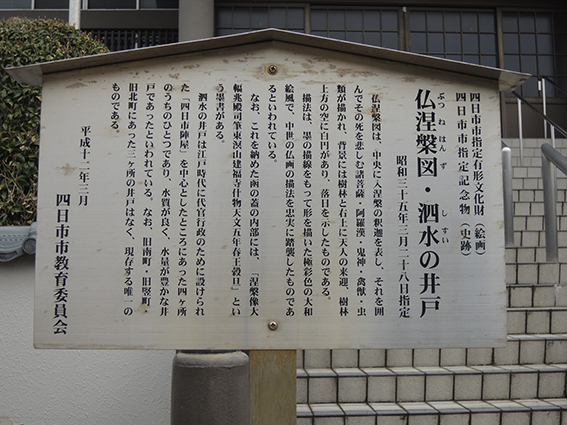 四日市市指定有形文化財（絵画）
四日市市指定記念物（史跡）
仏涅槃図・泗水の井戸
ぶつねはんず
しすい
昭和三十五年三月二十八日指定
仏涅槃図は、中央に入涅槃の釈迦を表し、それを囲
んでその死を悲しむ諸菩薩・阿羅漢・鬼神・禽獣・虫
類が描かれ、背景には樹林と右上に天人の来迎、樹林
上方の空に月円があり、落日を示したものである。
描法は、墨の描線をもって形を描いた極彩色の大和
絵風で、中世の仏画の描法を忠実に踏襲したものであ
るといわれている。
なお、これを納めた函の蓋の内部には、「涅槃像大
幅兆殿司筆東溟山建福寺什物天文五年春王穀旦」とい
う墨書がある。
泗水の井戸は江戸時代に代官行政のために設けられ
た「四日市陣屋」を中心としたところにあった四ヶ所
のうちのひとつであり、水質が良く、水量が豊かな井
戸であったといわれている。なお、旧南町・旧竪町・
旧北町にあった三ヶ所の井戸はなく、現存する唯一の
ものである。
平成十二年三月
四日市市教育委員会